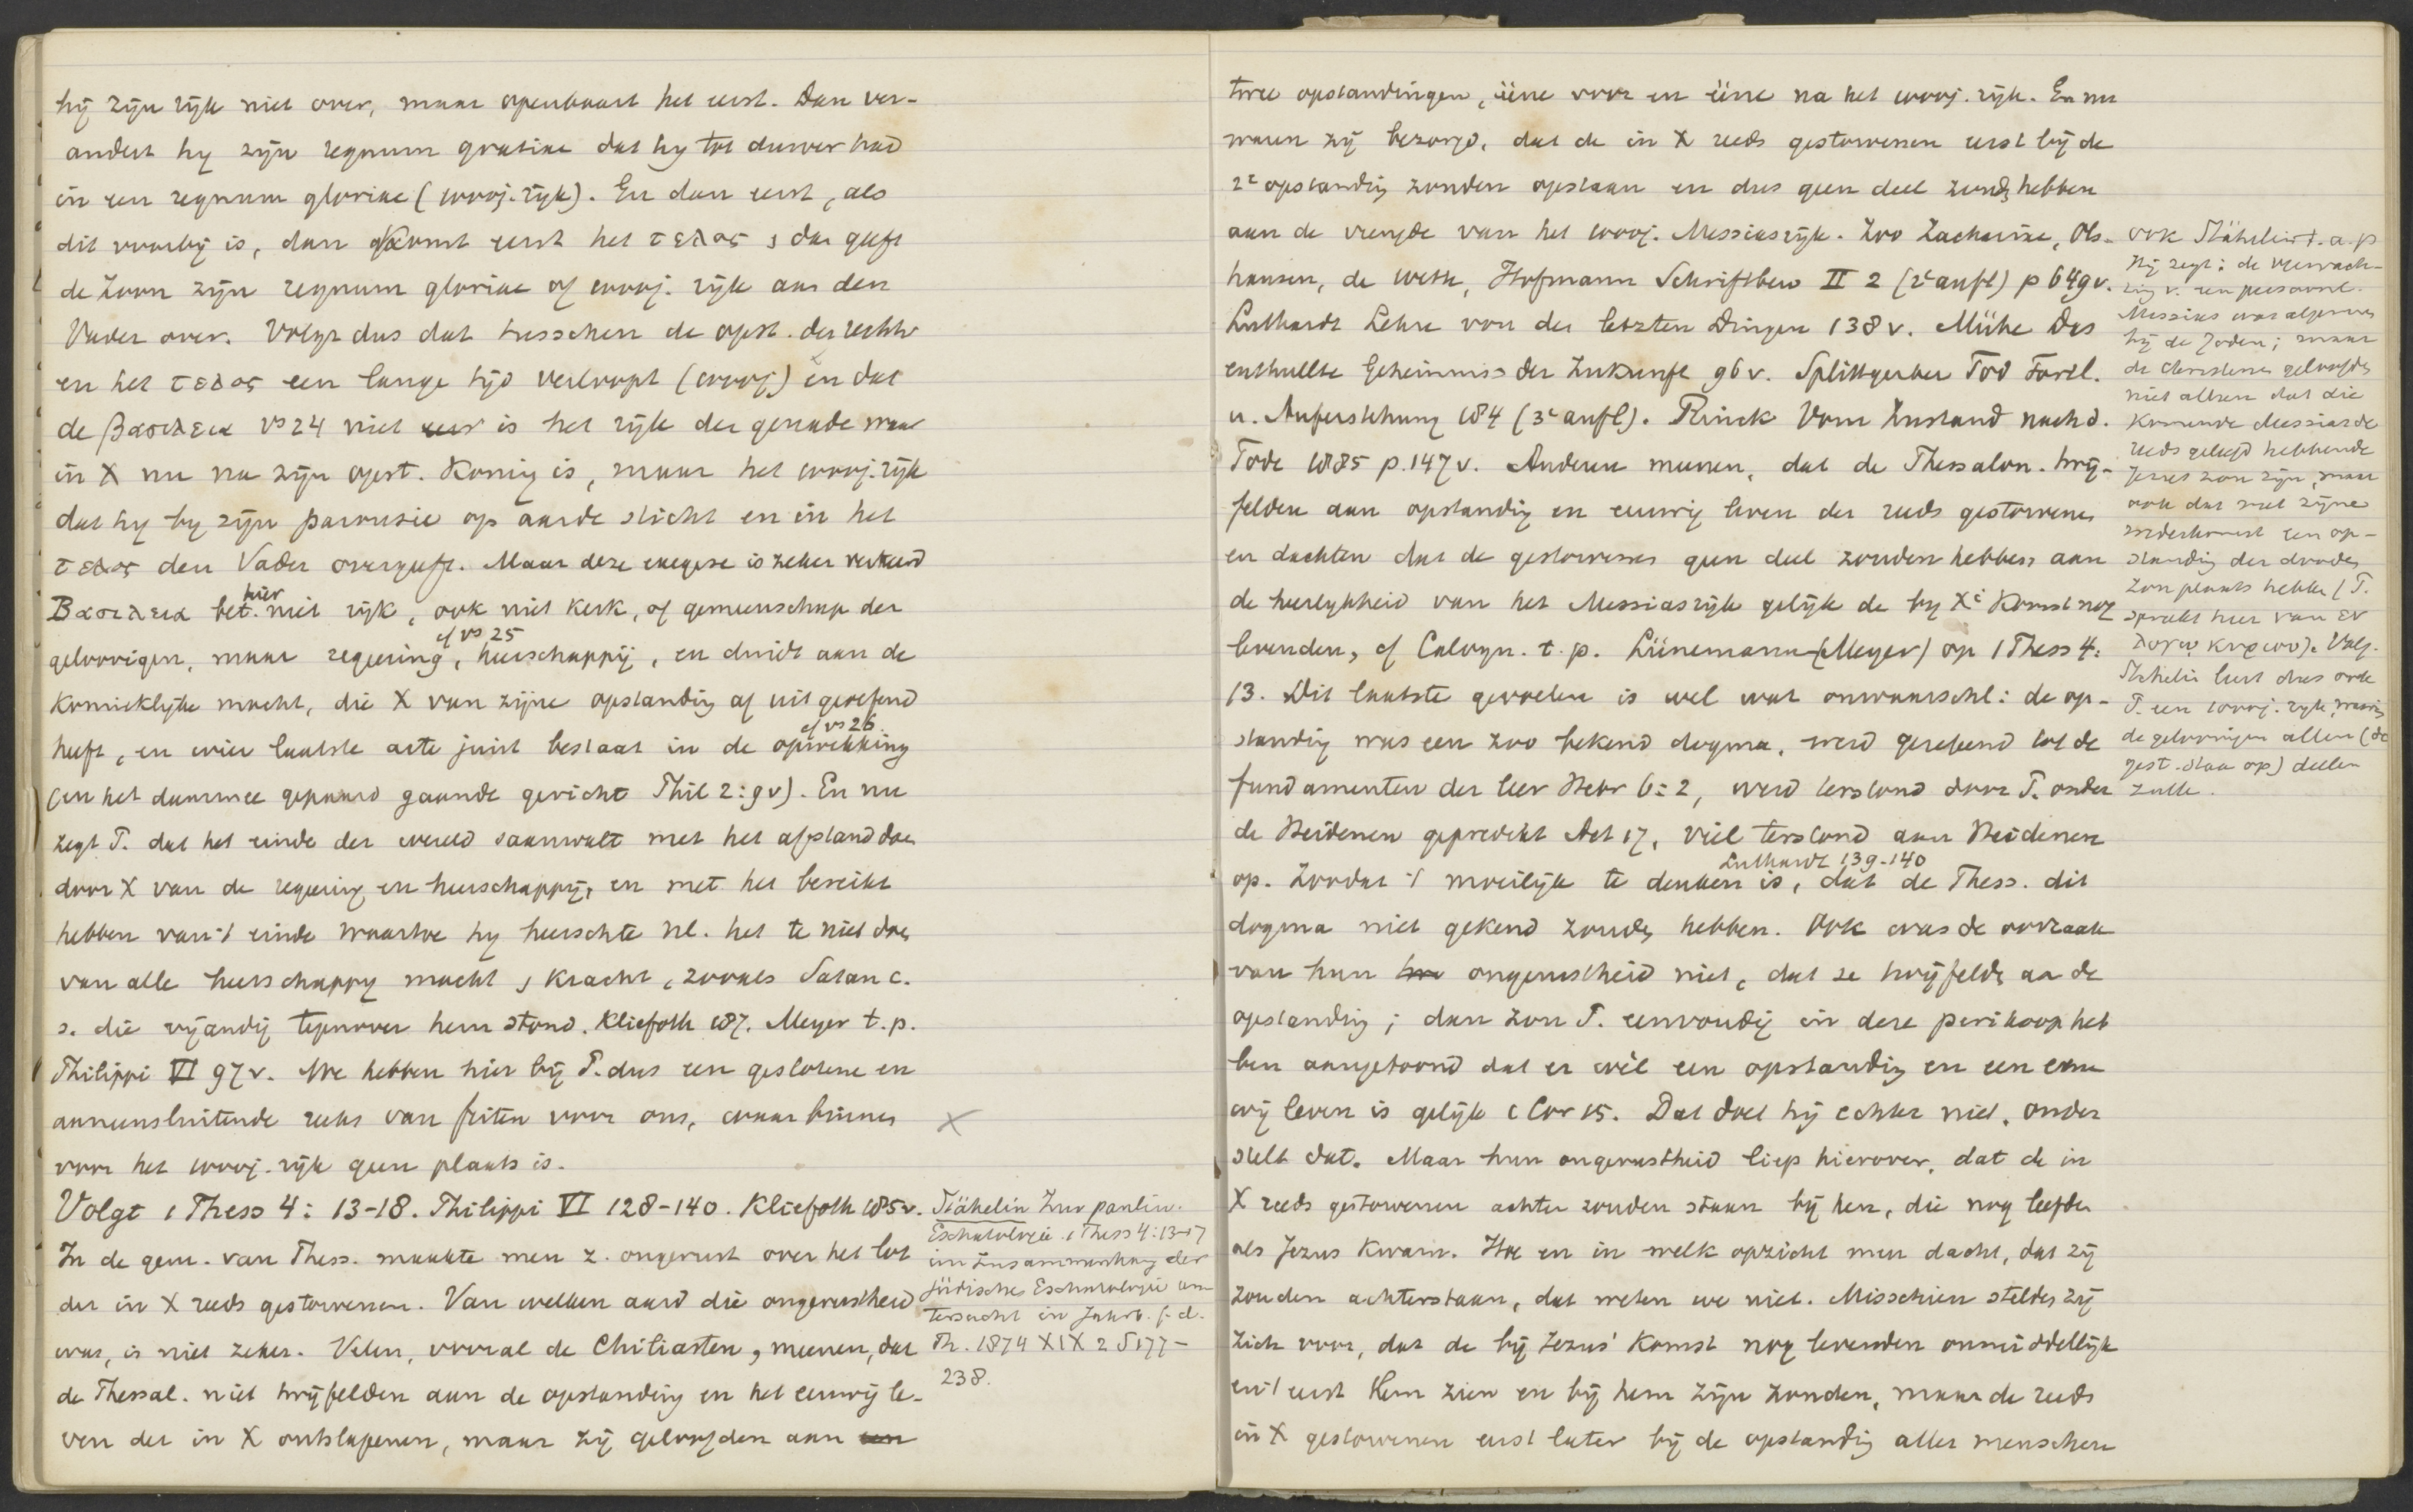 hij zijn rijk niet over, maar openbaart het eerst. Dan ver-
andert hij zijn regnum gratiae dat hij tot dusver had
in een regnum gloriae (1000j. rijk). En dan eerst, als
dit voorbij is, dan komt eerst het τελος, dan geeft
de Zoon zijn regnum gloriae of 1000j. rijk aan den
Vader over. Volgt dus dat tusschen de opst. der rechtv
en het τελος een lange tijd verloopt (1000j) en dat
de βασιλεια vs 24 niet is het rijk der genade waar
in X nu na zijn opst. Koning is, maar het 1000j. rijk
dat hij bij zijn parousie op aarde sticht en in het
τελος den Vader overgeeft. Maar deze exegese is zeker verkeerd
Βασιλεια bet. hier niet rijk, ook niet kerk, of gemeenschap der
geloovigen, maar regeering, cf vs 25 heerschappij, en duidt aan de
Koninklijke macht, die X van zijne opstanding af uitgeoefend
heeft, en wier laatste acte juist bestaat in de opwekking cf vs 26.
(en het daarmee gepaard gaande gericht Phil 2:9v). En nu
zegt P. dat het einde der wereld saamvalt met het afstand doen
door X van de regeering en heerschappij, en met het bereikt
hebben van 't einde waartoe hij heerschte nl. het te niet doen
van alle heerschappij macht, kracht, zooals Satan c.
s. die vijandig tegenover hem stond. Kliefoth 187. Meyer t.p.
Philippi VI 97v. We hebben hier bij P. dus een geslotene en
aaneensluitende reeks van feiten voor ons, waar binnen
voor het 1000j. rijk geen plaats is.
Volgt 1 Thess 4: 13-18. Philippi VI 128-140. Kliefoth 185v.
In de gem. van Thess. maakte men z. ongerust over het lot
der in X reeds gestorvenen. Van welken aard die ongerustheid
was, is niet zeker. Velen, vooral de Chiliasten, meenen, dat
de Thessal. niet twijfelden aan de opstanding en het eeuwig le-
ven der in X ontslapenen, maar zij geloofden aan een
X
Stähelin Zur paulin.
Eschatologie. 1 Thess 4:13-17
im Zusammenhang der
jüdische Eschatologie un
tersucht in Jahrb. f. d.
Th. 1874 XIX 2 S 177-
238.
twee opstandingen, ééne voor en ééne na het 1000j. rijk. En nu
waren zij bezorgd, dat de in X reeds gestorvenen eerst bij de
2e opstanding zouden opstaan en dus geen deel zouden hebben
aan de vreugde van het 1000j. Messiasrijk. Zoo Zachariae, Ols-
hausen, de Wette, Hofmann Schriftbew II 2 (2e aufl) p 649v.
Luthardt Lehre von der letzten Dingen 138v. Mühe Das
enthullte Geheimniss der Zukunft 96v. Splittgerber Tod Fortl.
u. Auferstehung 184 (3e aufl). Rinck Vom Zustand nach d.
Tode 1885 p. 147v. Anderen meenen, dat de Thessalon. twij-
felden aan opstanding en eeuwig leven der reeds gestorvenen
en dachten dat de gestorvenen geen deel zouden hebben aan
de heerlijkheid van het Messiasrijk gelijk de bij Xi komst nog
levenden, cf Calvyn. t.p. Lünemann (Meyer) op 1 Thess 4:
13. Dit laatste gevoelen is wel wat onwaarschl: de op-
standing was een zoo bekend dogma, werd gerekend tot de
fundamenten der leer Hebr 6:2, werd terstond door P. onder
de Heidenen gepredikt Act 17, viel terstond aan Heidenen
op. Zoodat 't moeilijk te denken is, Luthardt 139-140 dat de Thess. dit
dogma niet gekend zouden hebben. Ook was de oorzaak
van hun ongerustheid niet, dat ze twijfelde aan de
opstanding; dan zou P. eenvoudig in deze perikoop heb
ben aangetoond dat er wél een opstanding en een eeu
wig leven is gelijk 1 Cor 15. Dat doet hij echter niet, onder
stelt dat. Maar hun ongerustheid liep hierover, dat de in
X reeds gestorvenen achter zouden staan bij hen, die nog leefden
als Jezus kwam. Hoe en in welk opzicht men dacht, dat zij
zouden achterstaan, dat weten we niet. Misschien stelden zij
zich voor, dat de bij Jezus' komst nog levenden onmiddellijk
en 't eerst Hem zien en bij hem zijn zouden, maar de reeds
in X gestorvenen eerst later bij de opstanding aller menschen
ook Stähelin t.a.p
Hij zegt: de verwach-
ting v. een persoonl.
Messias was algemeen
bij de Joden; maar
de Christenen geloofden
niet alleen dat die
Komende Messias de
reeds geleefd hebbende
Jezus zou zijn, maar
ook dat met zijne
wederkomst een op-
standing der dooden
zou plaats hebben (P.
spreekt hier van εν
λογω κυριου). Volg.
Stähelin leert dus ook
P. een 1000j. rijk, waarin
de geloovigen allen (de
gest. staan op) deelen
zullen.